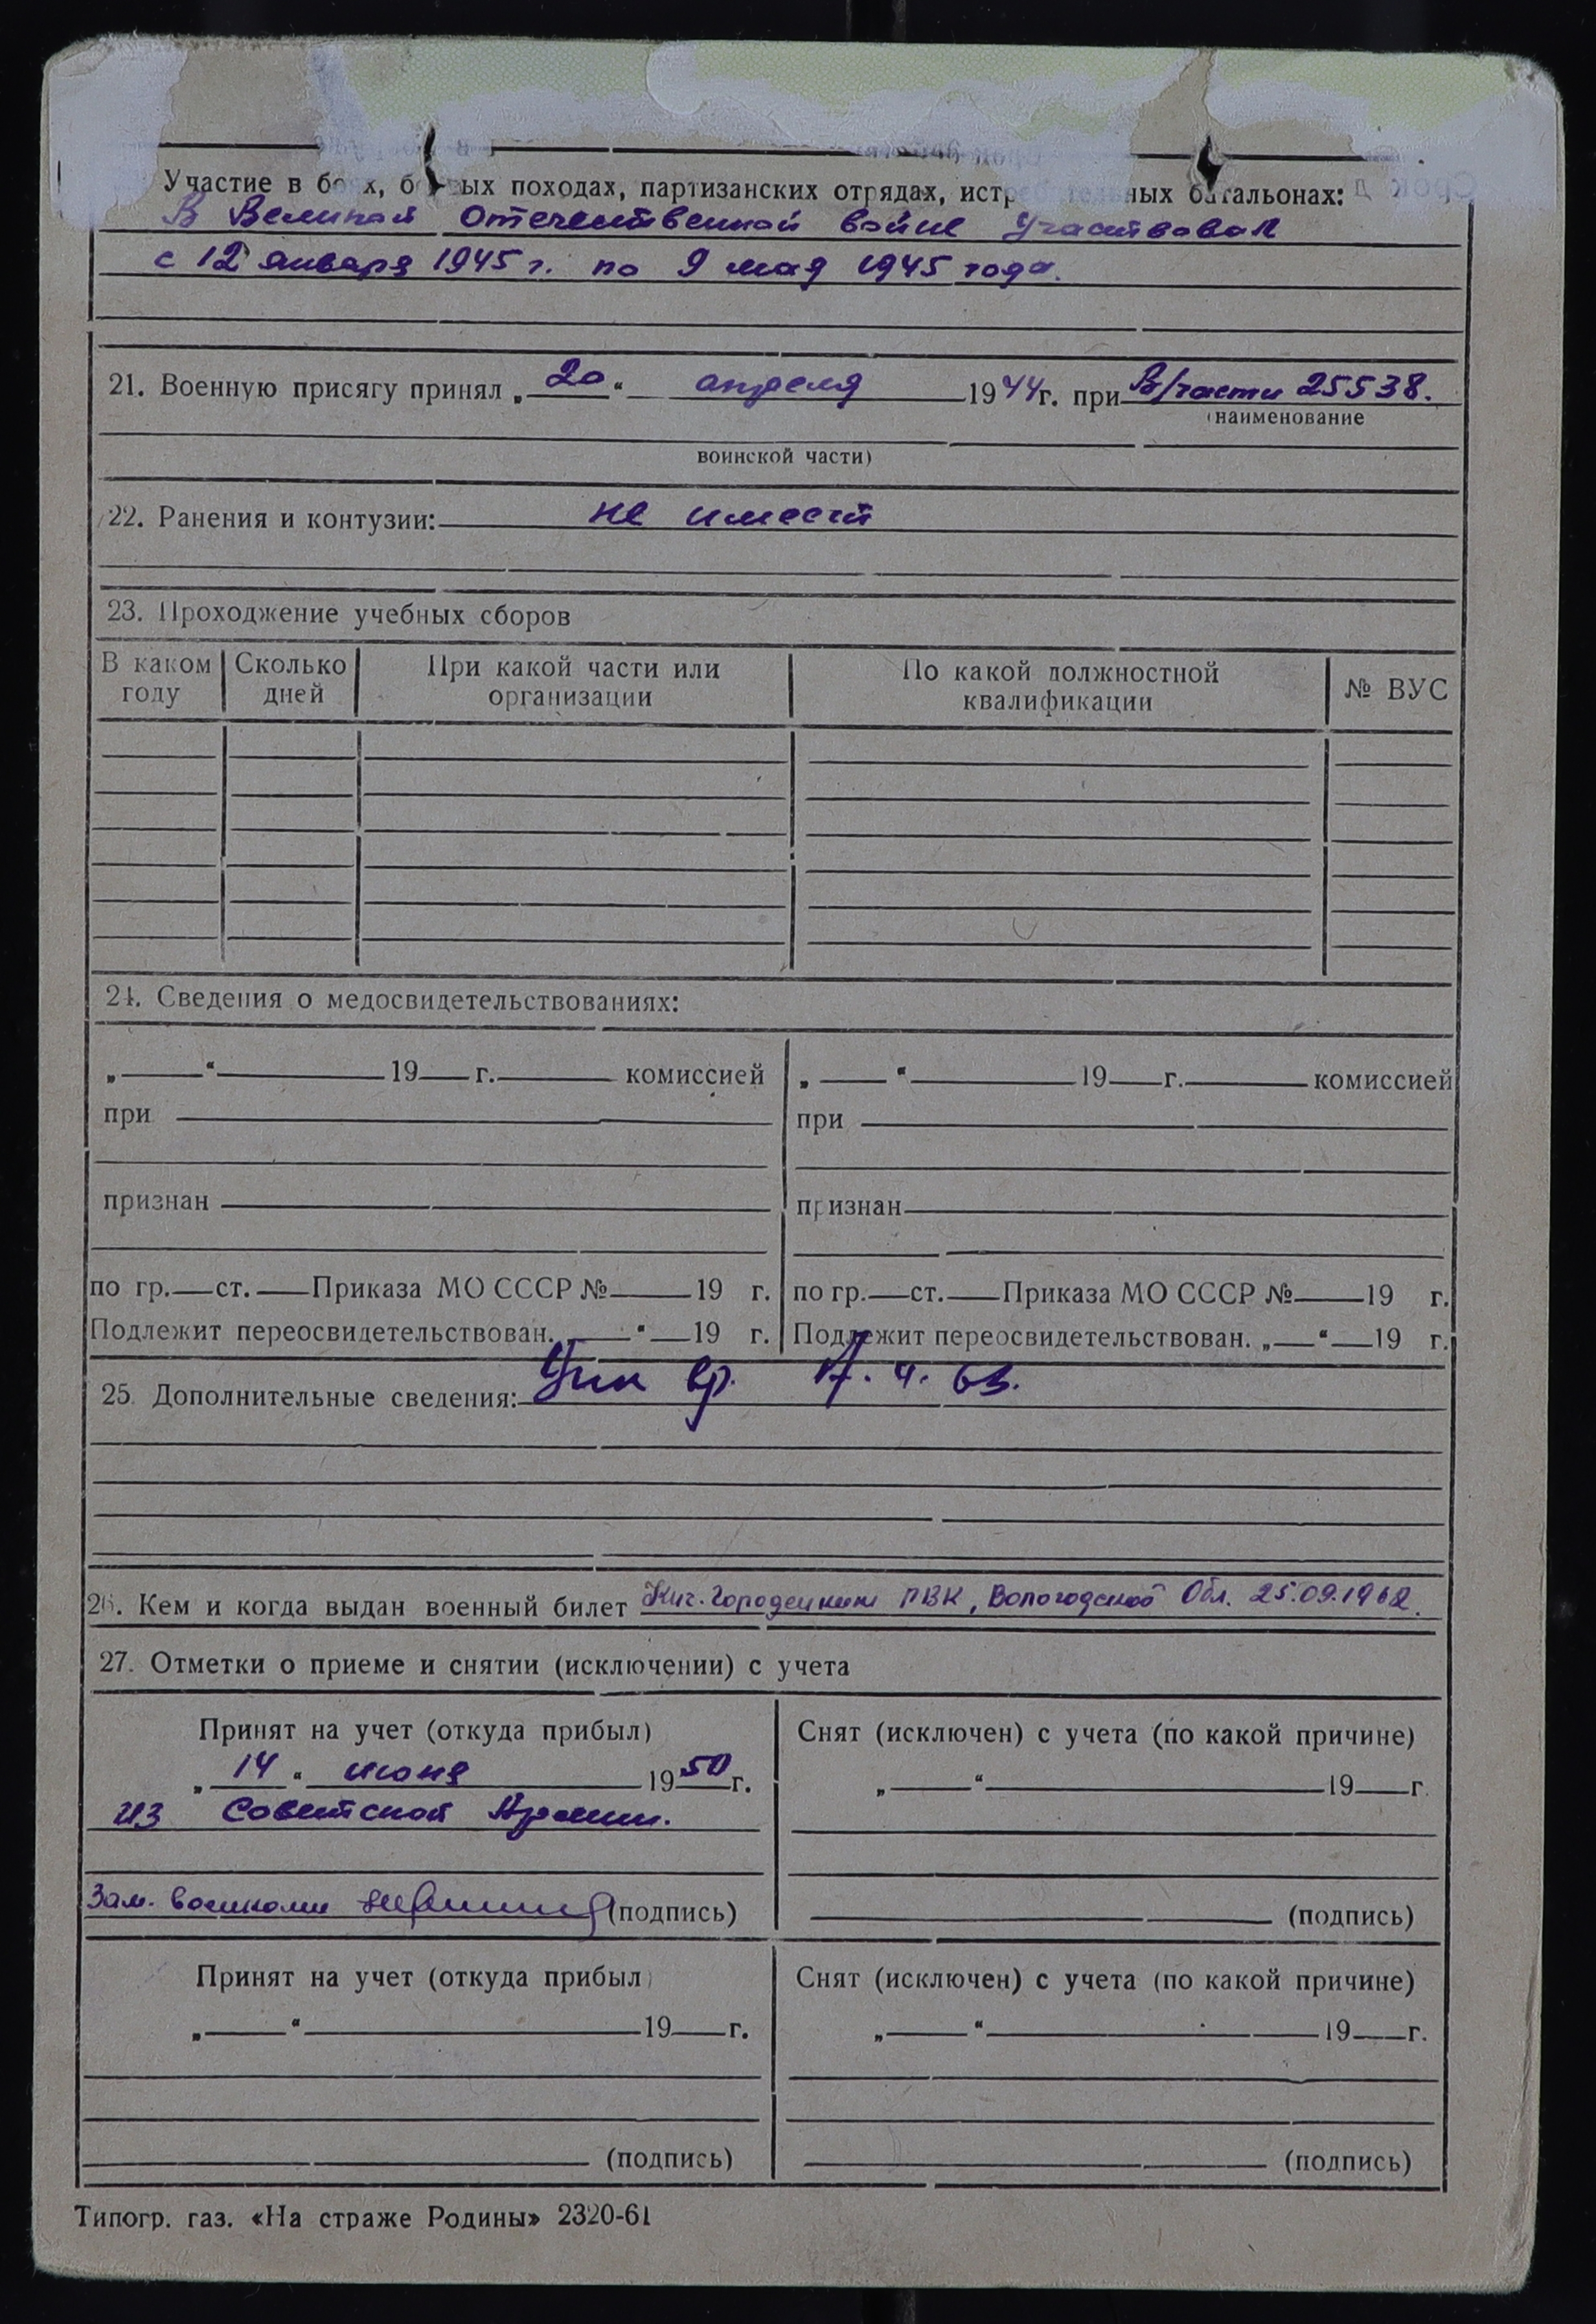 Участие в боях, боевых походах, партизанских отрядах, истребительных батальонах:
В Великой Отечественной войне участвовал
с 12 января 1945 г. по 9 мая 1945 года.
21. Военную присягу принял „20“ апреля 1944г. при В/части 25538.
(наименование
воинской части)
22. Ранения и контузии: не имеет
23. Прохождение учебных сборов
В каком году Сколько дней При какой части или организации По какой должностной квалификации № ВУС
24. Сведения о медосвидетельствованиях:
„ “ 19 г. комиссией „ “ 19 г. комиссией
при при
признан признан
по гр. ст. Приказа МО СССР № 19 г. по гр. ст. Приказа МО СССР № 19 г.
Подлежит переосвидетельствован. „ “ 19 г. Подлежит переосвидетельствован. „ “ 19 г.
25. Дополнительные сведения: 4. 63.
26. Кем и когда выдан военный билет Кич.-Городецким РВК, Вологодской Обл. 25.09.1962.
27. Отметки о приеме и снятии (исключении) с учета
Принят на учет (откуда прибыл) Снят (исключен) с учета (по какой причине)
„14“ июня 1950г. „ “ 19 г.
из Советской Армии.
Зам. военкома (подпись) (подпись)
Принят на учет (откуда прибыл) Снят (исключен) с учета (по какой причине)
„ “ 19 г. „ “ 19 г.
(подпись) (подпись)
Типогр. газ. «На страже Родины» 2320-61